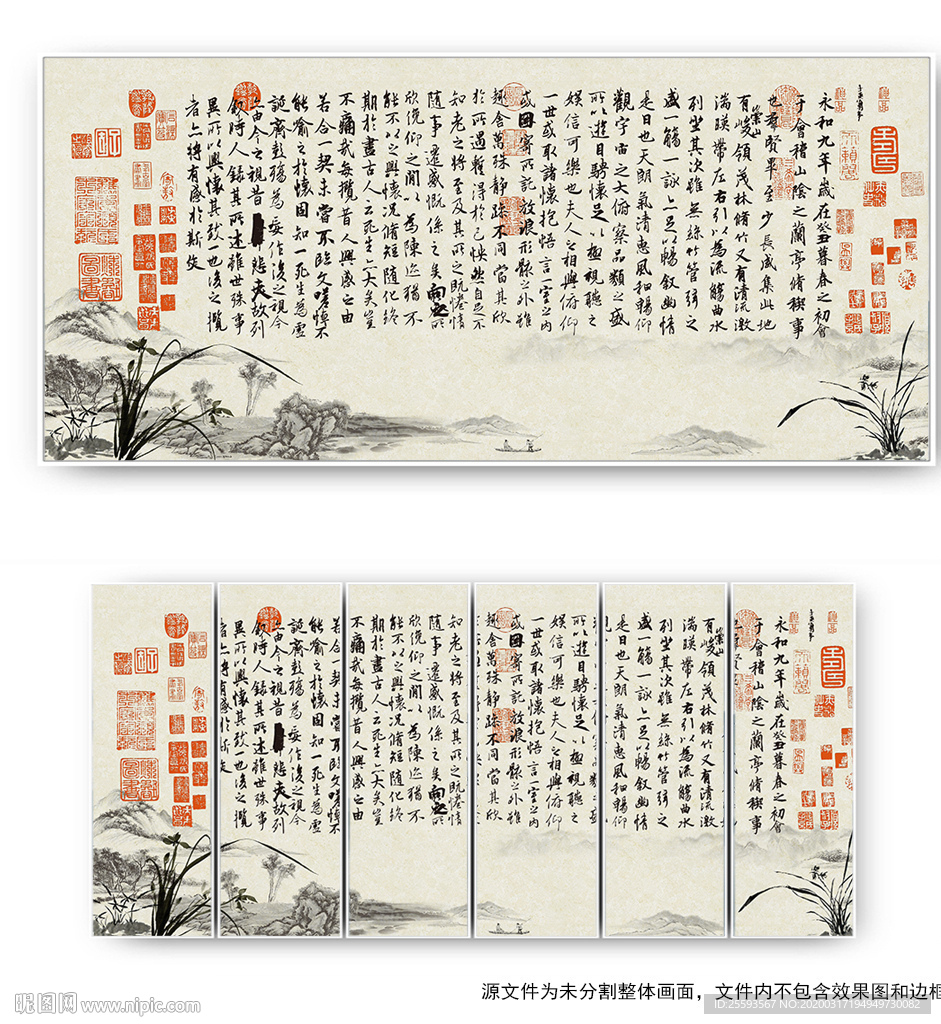 永和九年歲在癸丑暮春之初會
于會稽山陰之蘭亭脩稧事
也羣賢畢至少長咸集此地
有崇山峻領茂林脩竹又有清流激
湍暎帶左右引以為流觴曲水
列坐其次雖無絲竹管弦之
盛一觴一詠亦足以暢敘幽情
是日也天朗氣清惠風和暢仰
觀宇宙之大俯察品類之盛
所以遊目騁懷足以極視聽之
娛信可樂也夫人之相與俯仰
一世或取諸懷抱悟言一室之內
或因寄所託放浪形骸之外雖
趣舍萬殊靜躁不同當其欣
於所遇暫得於己怏然自足不
知老之將至及其所之既惓情
隨事遷感慨係之矣向之所
欣俛仰之間以為陳迹猶不
能不以之興懷況脩短隨化終
期於盡古人云死生亦大矣豈
不痛哉每攬昔人興感之由
若合一契未嘗不臨文嗟悼不
能喻之於懷固知一死生為虛
誕齊彭殤為妄作後之視今
亦由今之視昔悲夫故列
敘時人錄其所述雖世殊事
異所以興懷其致一也後之攬
者亦將有感於斯文
永和九年歲在癸丑暮春之初會
于會稽山陰之蘭亭脩稧事
有崇山峻領茂林脩竹又有清流激
湍暎帶左右引以為流觴曲水
列坐其次雖無絲竹管弦之
盛一觴一詠亦足以暢敘幽情
是日也天朗氣清惠風和暢仰
所以遊目騁懷足以極視聽之
娛信可樂也夫人之相與俯仰
一世或取諸懷抱悟言一室之內
或因寄所託放浪形骸之外雖
趣舍萬殊靜躁不同當其欣
知老之將至及其所之既惓情
隨事遷感慨係之矣向之所
欣俛仰之間以為陳迹猶不
能不以之興懷況脩短隨化終
期於盡古人云死生亦大矣豈
不痛哉每攬昔人興感之由
若合一契未嘗不臨文嗟悼不
能喻之於懷固知一死生為虛
誕齊彭殤為妄作後之視今
亦由今之視昔悲夫故列
敘時人錄其所述雖世殊事
異所以興懷其致一也後之攬
者亦將有感於斯文
源文件为未分割整体画面，文件内不包含效果图和边框
昵图网 www.nipic.com
ID:25593567 NO:20200317194949730082